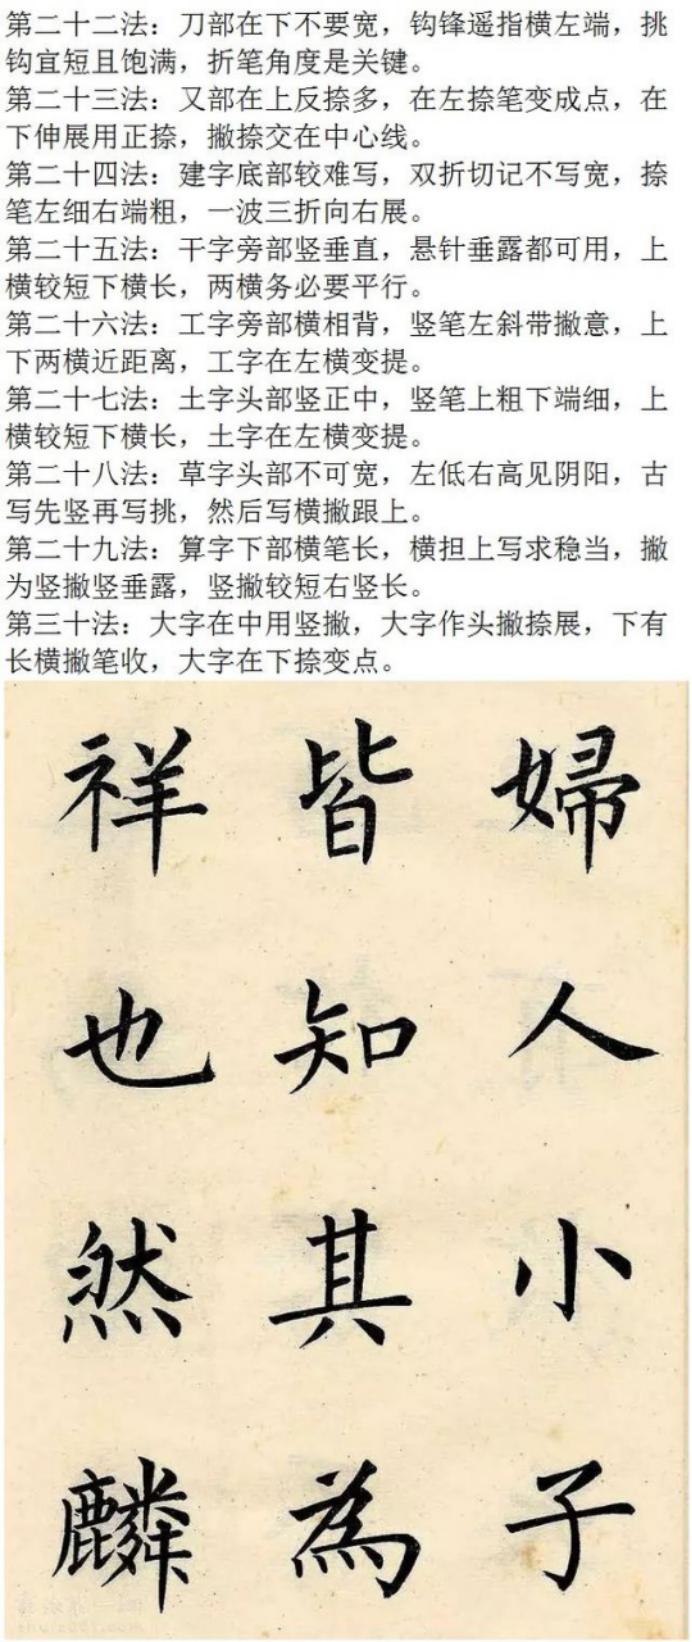 第二十二法：刀部在下不要宽，钩锋遥指横左端，挑
钩宜短且饱满，折笔角度是关键。
第二十三法：又部在上反捺多，在左捺笔变成点，在
下伸展用正捺，撇捺交在中心线。
第二十四法：建字底部较难写，双折切记不写宽，捺
笔左细右端粗，一波三折向右展。
第二十五法：干字旁部竖垂直，悬针垂露都可用，上
横较短下横长，两横务必要平行。
第二十六法：工字旁部横相背，竖笔左斜带撇意，上
下两横近距离，工字在左横变提。
第二十七法：土字头部竖正中，竖笔上粗下端细，上
横较短下横长，土字在左横变提。
第二十八法：草字头部不可宽，左低右高见阴阳，古
写先竖再写挑，然后写横撇跟上。
第二十九法：算字下部横笔长，横担上写求稳当，撇
为竖撇竖垂露，竖撇较短右竖长。
第三十法：大字在中用竖撇，大字作头撇捺展，下有
长横撇笔收，大字在下捺变点。
婦人小子
皆知其為
祥也然麟